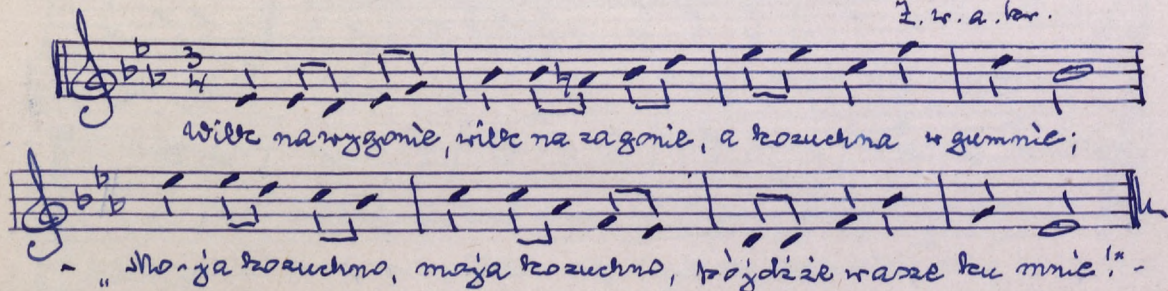 Z. w. a. kw.
3
4
Wilk na wygonie, wilk na zagonie, a kozuchna w gumnie;
- „Mo-ja kozuchno, moja kozuchno, pójdźże wasze ku mnie!" -